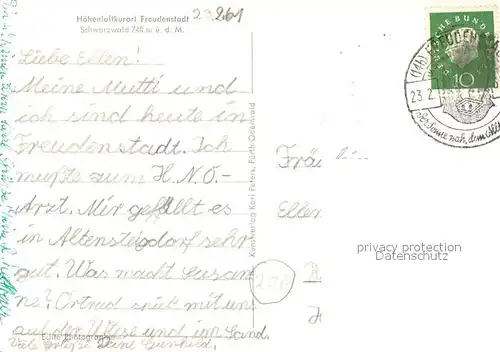 Höhenluftkurort Freudenstadt
Schwarzwald 740 m ü. d. M.
23.2.61
Liebe Ellen!
Meine Mutti und
ich sind heute in
Freudenstadt. Ich
mußte zum H.N.O.-
Arzt. Mir gefällt es
in Altensteigdorf sehr
gut. Was macht Susan
ne? Ortrud spielt mit uns
auf der Wiese und im Sand.
Echte Photographie
Viele Grüße Deine
Kunstverlag Karl Peters, Fürth-Odenwald
DEUTSCHE BUNDESPOST
10
23.2.
der Sonne nah, dem Alltag
Frä
Ellen
privacy protection
Datenschutz